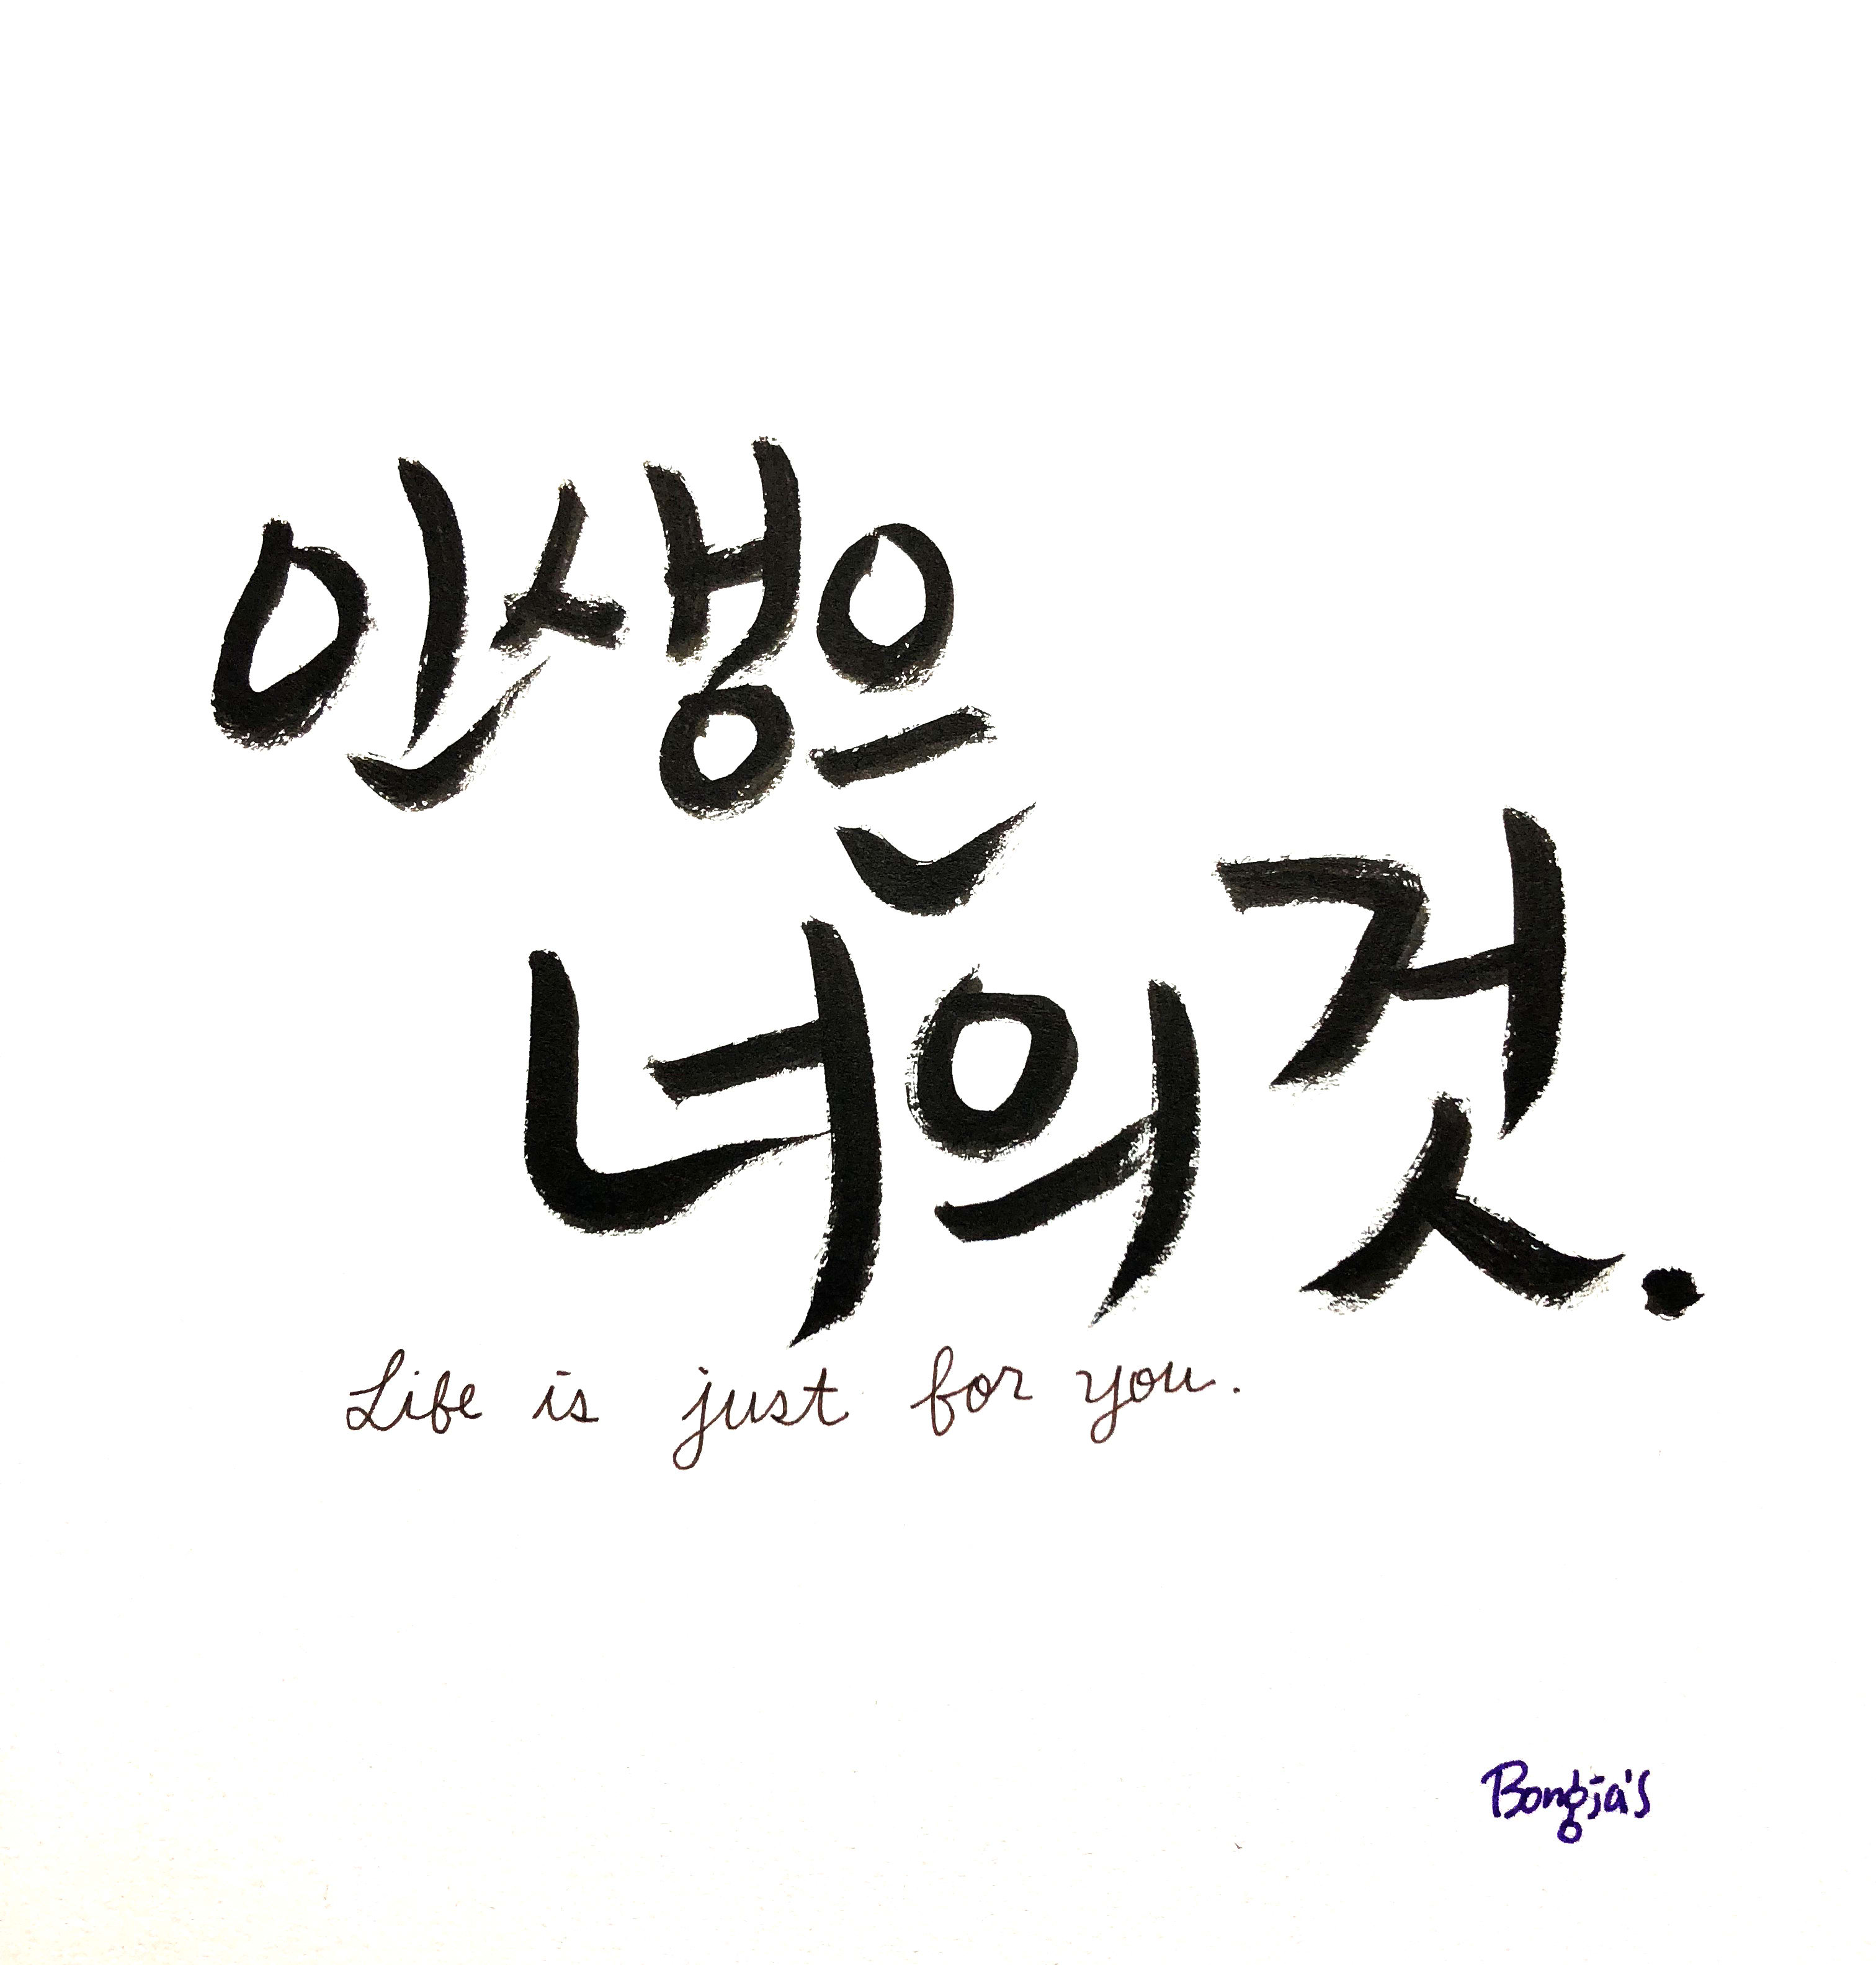 인생은
너의 것.
Life is just for you.
Bongja's